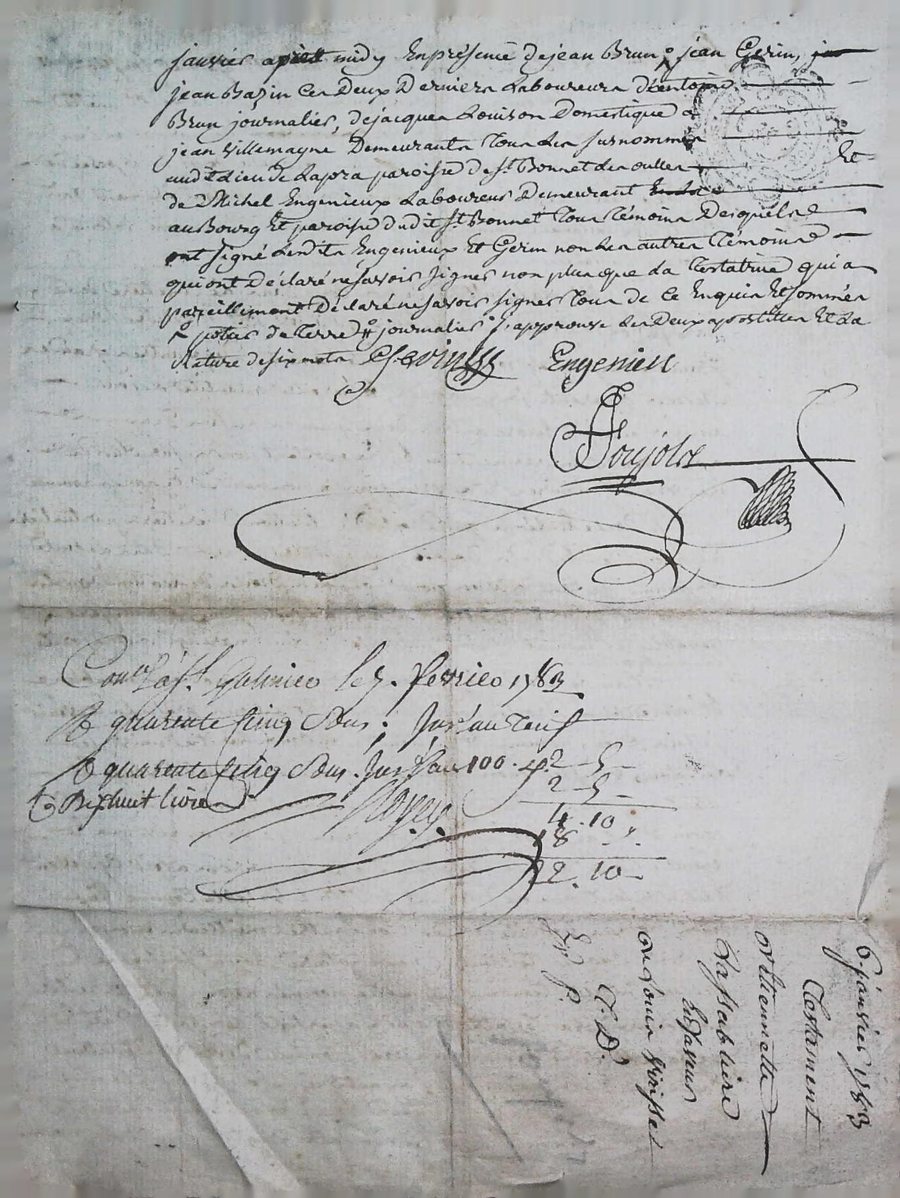 janvier après midy En présence de jean Brun, jean Gerin,
jean Bazin ces Deux Derniers Laboureurs d'entoine
Brun journalier, de jacques Louison Domestique
jean Villemagne Demeurants Tous les surnommés
audit Lieu de Lapra paroisse de St. Bonnet des oulles Et
de Michel Engenieux Laboureur Demeurant
au Bourg Et paroisse dudit St. Bonnet Tous Témoins Desquels
ont signé Lesdits Engenieux Et Gerin non Les autres Témoins
qui ont Déclaré ne savoir signer non plus que La Testatrice qui a
pareillement Déclaré ne savoir signer Tous de Ce Enquis Et sommés
potier de terre journalier J'approuve Les Deux apostilles Et La
Rature de six mots Gerin Engenieu
Poujols
Conlé à St. Galmier le 7. fevrier 1783
R quarente cinq sous; sur au Tarif
R quarente cinq sous. 100. 2 - 5 -
2 - 5 -
Dixhuit livres 4. 10
18
22. 10 -
6 janvier 1783
Testament
D'Etiennette
Lassabliere
En faveur
De Louis
T. D.
Ex P.